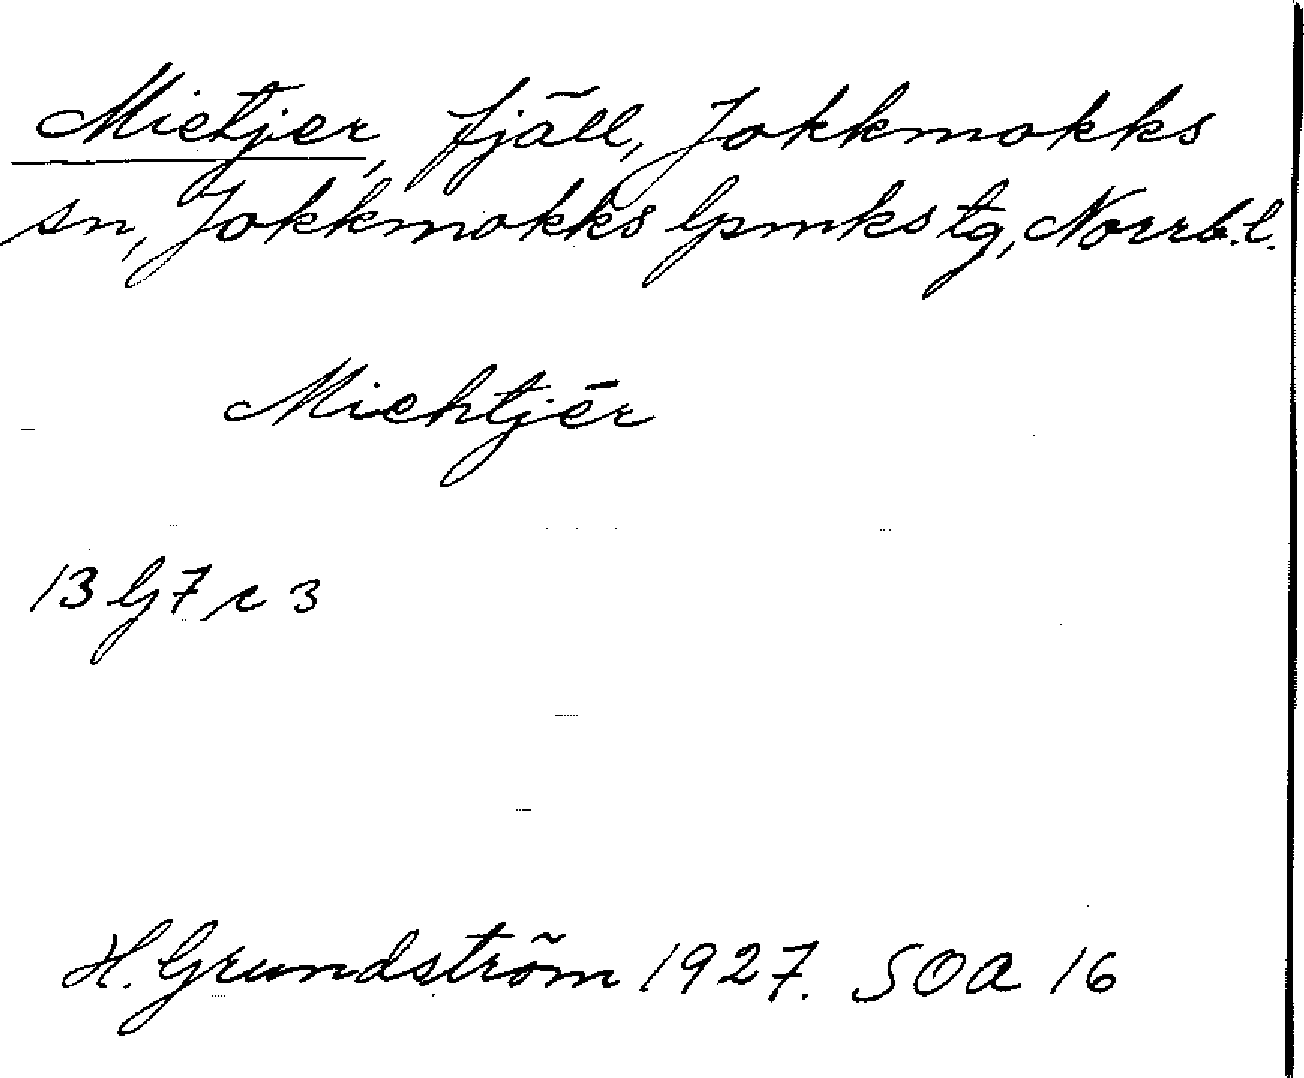 Mietjer, fjäll, Jokkmokks
sn, Jokkmokks lpmks tg, Norrb.l.
Miehtjēr
13 G 7 c 3
H. Grundström 1927. SOA 16